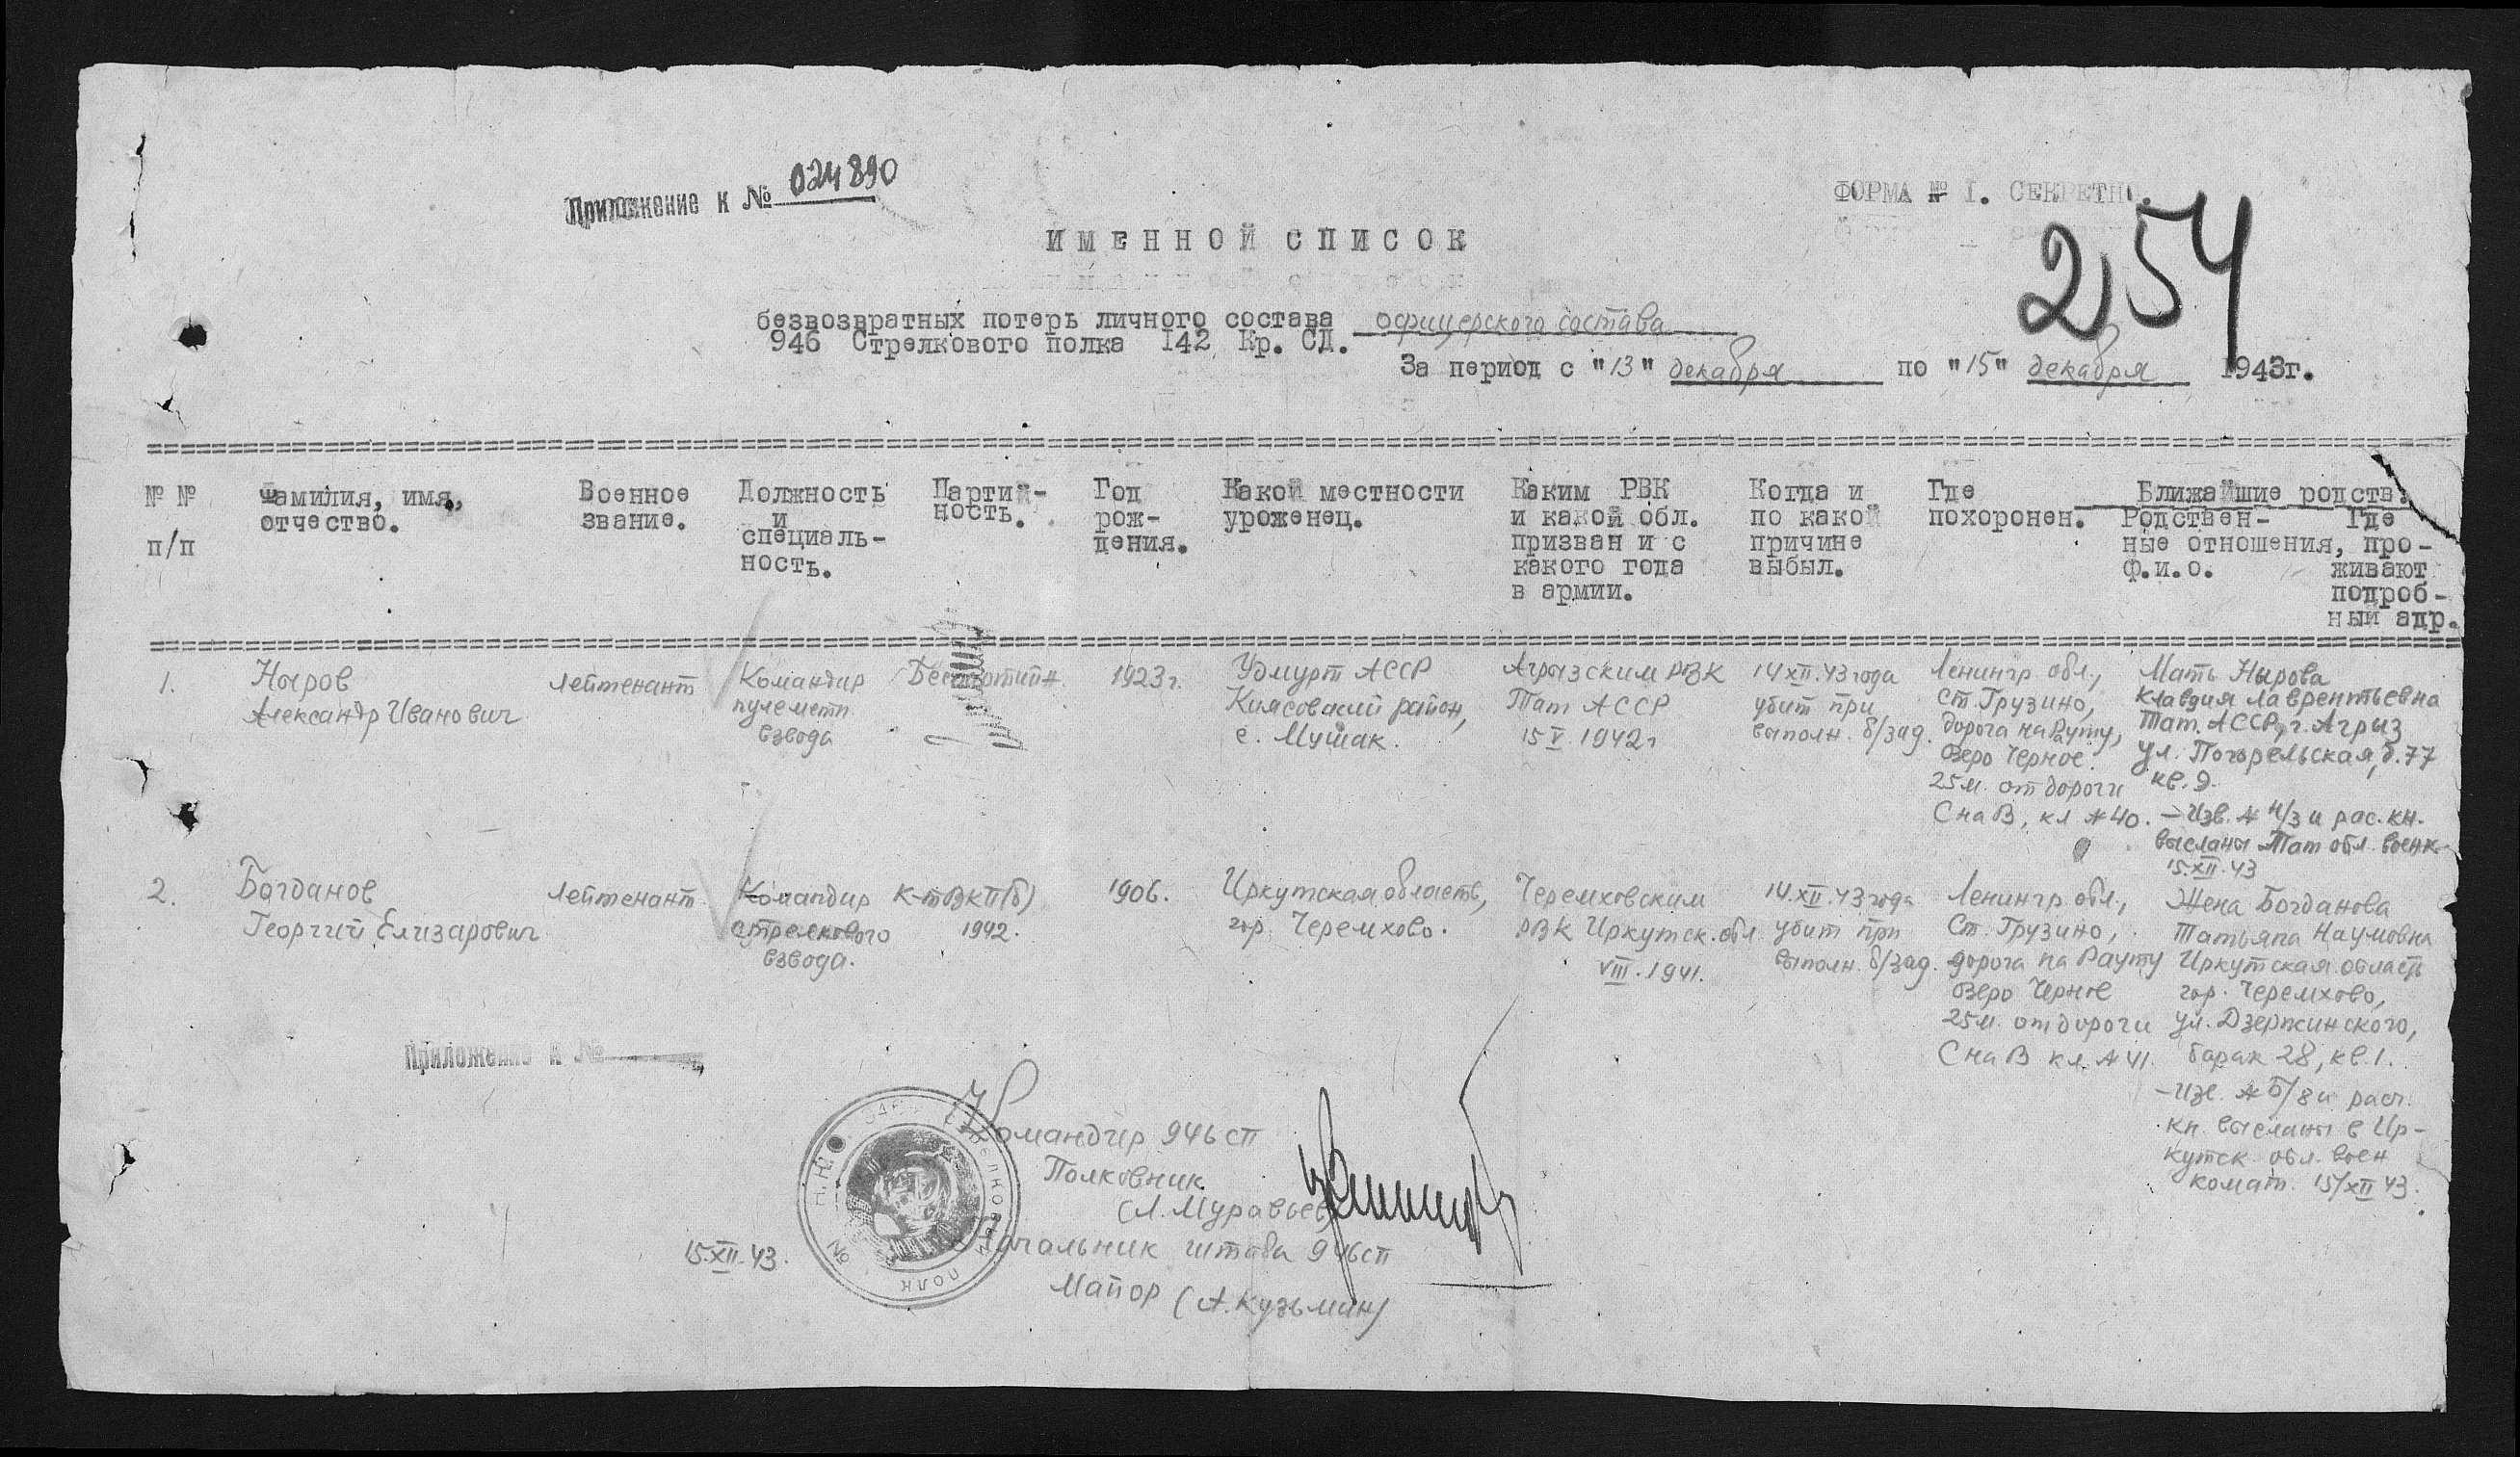 Приложение к № 024890
ФОРМА № I. СЕКРЕТНО.
254
ИМЕННОЙ СПИСОК
безвозвратных потерь личного состава офицерского состава
946 Стрелкового полка 142 Кр. СД.
За период с "13" декабря по "15" декабря 1943г.
№ № п/п
Фамилия, имя, отчество.
Военное звание.
Должность и специаль-
ность.
Партий-
ность.
Год рож-
дения.
Какой местности уроженец.
Каким РВК
и какой обл.
призван и с
какого года
в армии.
Когда и
по какой
причине
выбыл.
Где
похоронен.
Ближайшие родств.
Родствен-
ные отношения,
ф.и.о.
Где
про-
живают
подроб-
ный адр.
1.
Ныров
Александр Иванович
лейтенант
Командир
пулеметн.
взвода
Беспартийн.
1923 г.
Удмурт АССР
Киясовский район,
с. Мушак.
Агрызским РВК
Тат АССР
15 V. 1942 г
14 XII. 43 года
убит при
выполн. б/зад.
Ленингр обл.,
ст. Грузино,
дорога на Рауту,
Озеро Черное.
25 м. от дороги
С на В, кл № 40.
Мать Нырова
Клавдия Лаврентьевна
Тат. АССР, г. Агрыз
ул. Погорельская, д. 77
кв. 9.
– Изв. № н/з и рас. кн.
высланы Тат обл. военк
15.XII.43
2.
Богданов
Георгий Елизарович
лейтенант
Командир
стрелкового
взвода.
К-т ВКП(б)
1942.
1906.
Иркутская область,
гор. Черемхово.
Черемховским
РВК Иркутск. обл
VIII. 1941.
14.XII.43 года
убит при
выполн. б/зад.
Ленингр. обл.,
Ст. Грузино,
дорога на Рауту
Озеро Черное
25 м. от дороги
С на В кл. № 41.
Жена Богданова
Татьяна Наумовна
Иркутская область
гор. Черемхово,
ул. Дзержинского,
барак 28, кв. 1.
– Изв. № б/8 и расч.
кн. высланы в Ир-
кутск. обл. воен
комат. 15/XII 43.
Приложение к №
Командир 946 сп
Полковник
(Л. Муравьев)
Начальник штаба 946 сп
Майор (А. Кузьман)
15.XII.43.